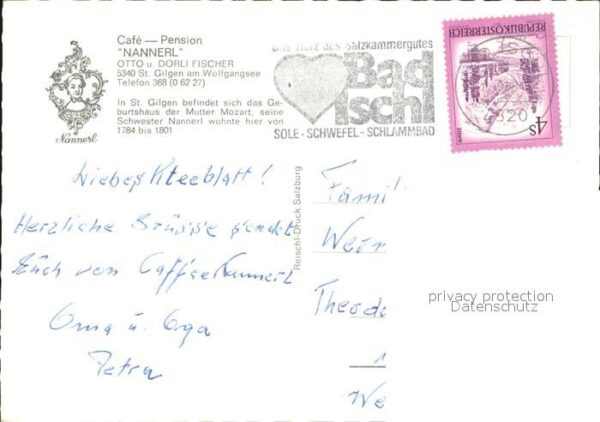 Café — Pension
"NANNERL"
OTTO u. DORLI FISCHER
5340 St. Gilgen am Wolfgangsee
Telefon 368 (0 62 27)
In St. Gilgen befindet sich das Ge-
burtshaus der Mutter Mozart, seine
Schwester Nannerl wohnte hier von
1784 bis 1801
Nannerl
Das Herz des Salzkammergutes
Bad
Ischl
SOLE - SCHWEFEL - SCHLAMMBAD
REPUBLIK ÖSTERREICH
4S
4820
Liebes Kleeblatt!
Herzliche Grüsse sendet
Euch von Caffee Nannerl
Oma u. Opa
Petra
Reischl-Druck Salzburg
Famil
Wern
Theod
We
privacy protection
Datenschutz